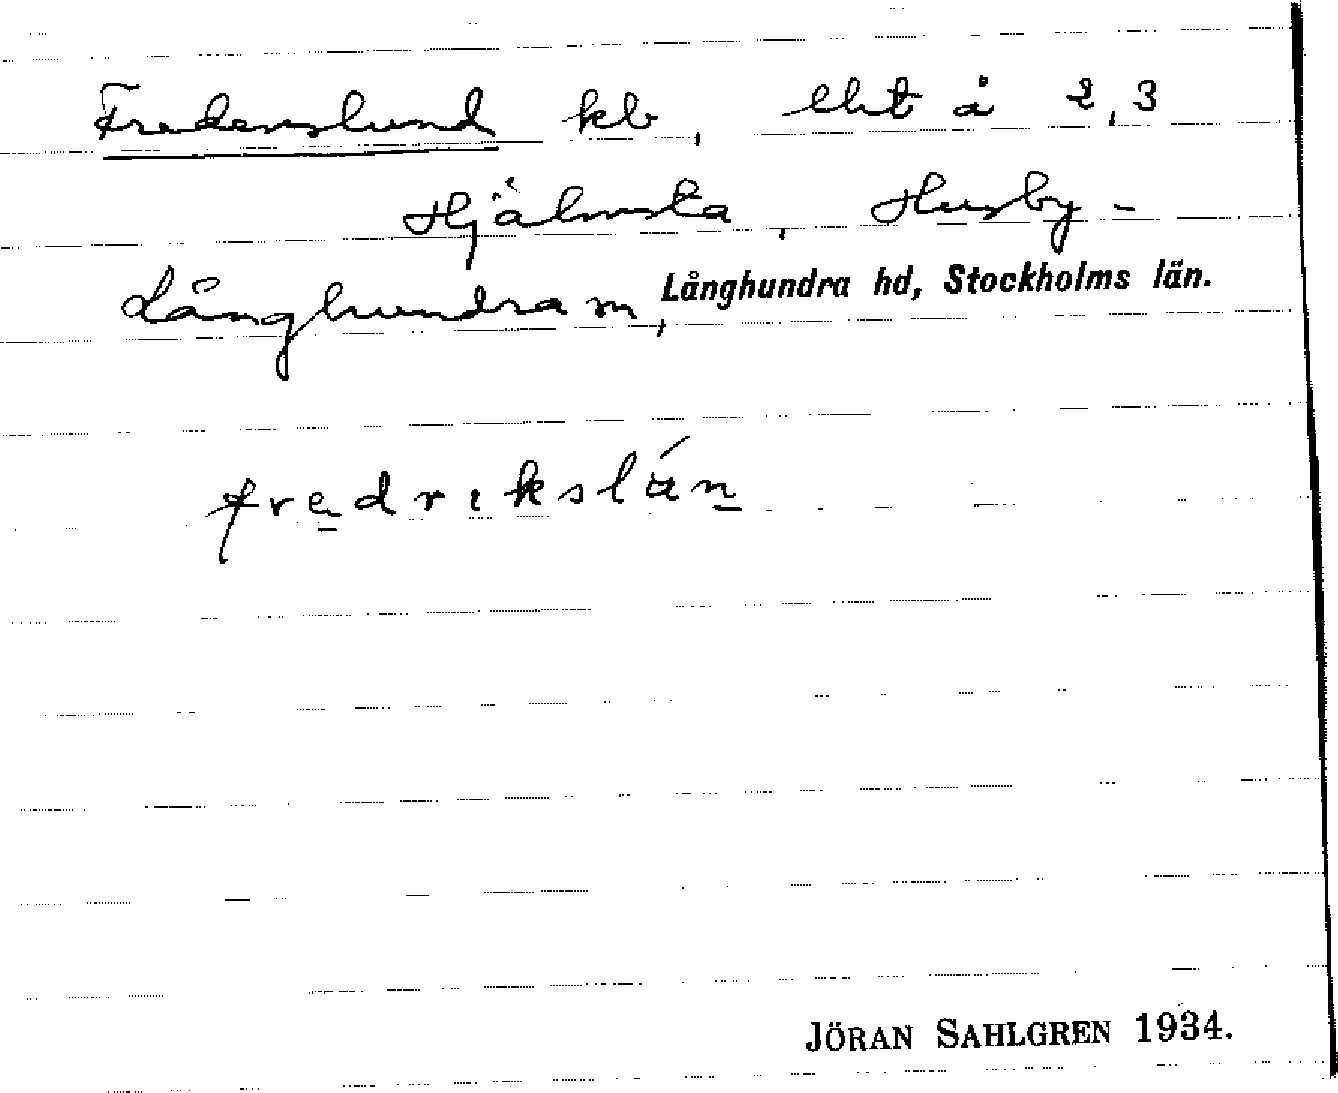 Fredenslund kb, eht å 2,3
Hjälmsta, Husby-
Långhundra sn, Långhundra hd, Stockholms län.
fredrikslán
JÖRAN SAHLGREN 1934.